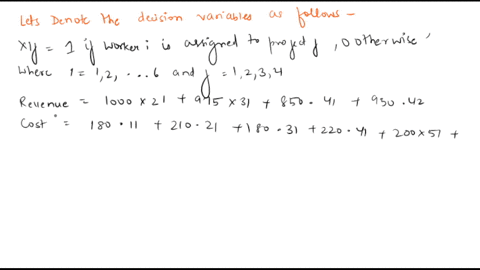 Lets Denote the decision variables as follows -
xij = 1 if worker i is assigned to project j, 0 otherwise
Where i = 1,2, ... 6 and j = 1,2,3,4
Revenue = 1000 x 21 + 975 x 31 + 850 . 41 + 950 . 42
Cost = 180 . 11 + 210 . 21 + 180 . 31 + 220 . 41 + 200 x 51 +